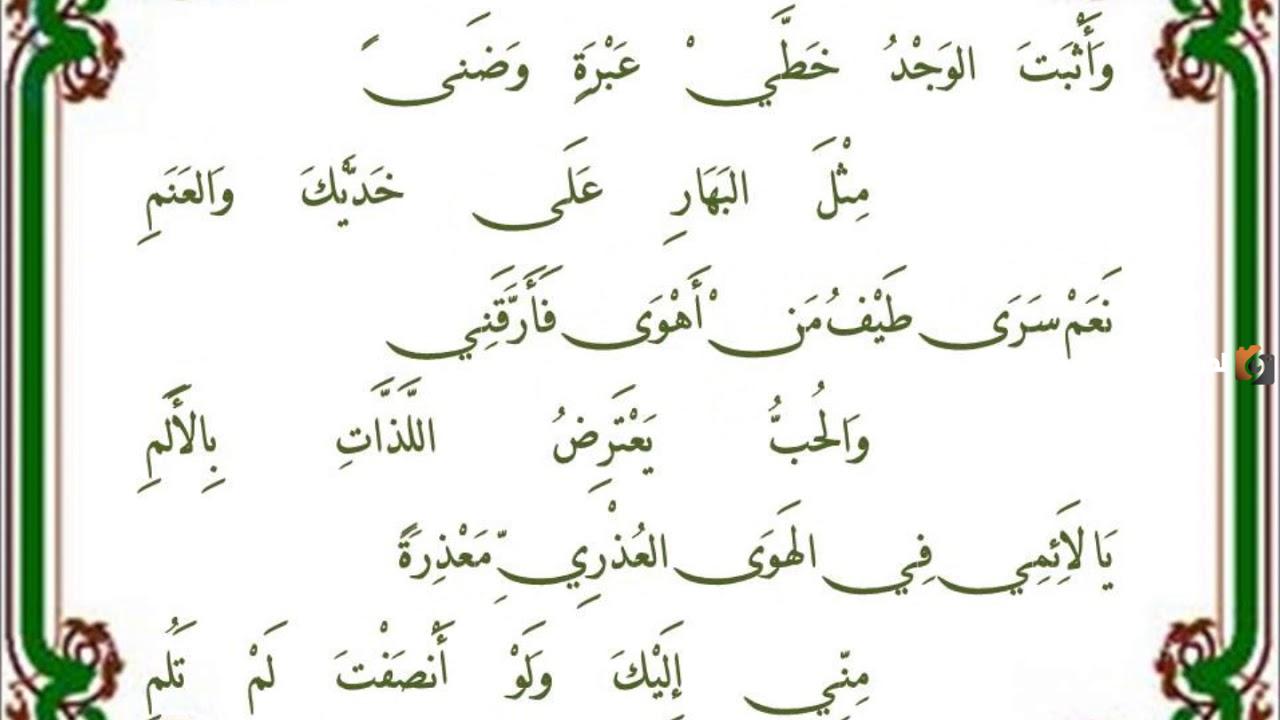 وَأَثْبَتَ الوَجْدُ خَطَّيْ عَبْرَةٍ وَضَنىً
مِثْلَ البَهَارِ عَلَى خَدَّيْكَ وَالعَنَمِ
نَعَمْ سَرَى طَيْفُ مَنْ أَهْوَى فَأَرَّقَنِي
وَالحُبُّ يَعْتَرِضُ اللَّذَّاتِ بِالأَلَمِ
يَا لَائِمِي فِي الهَوَى العُذْرِيِّ مَعْذِرَةً
مِنِّي إِلَيْكَ وَلَوْ أَنْصَفْتَ لَمْ تَلُمِ